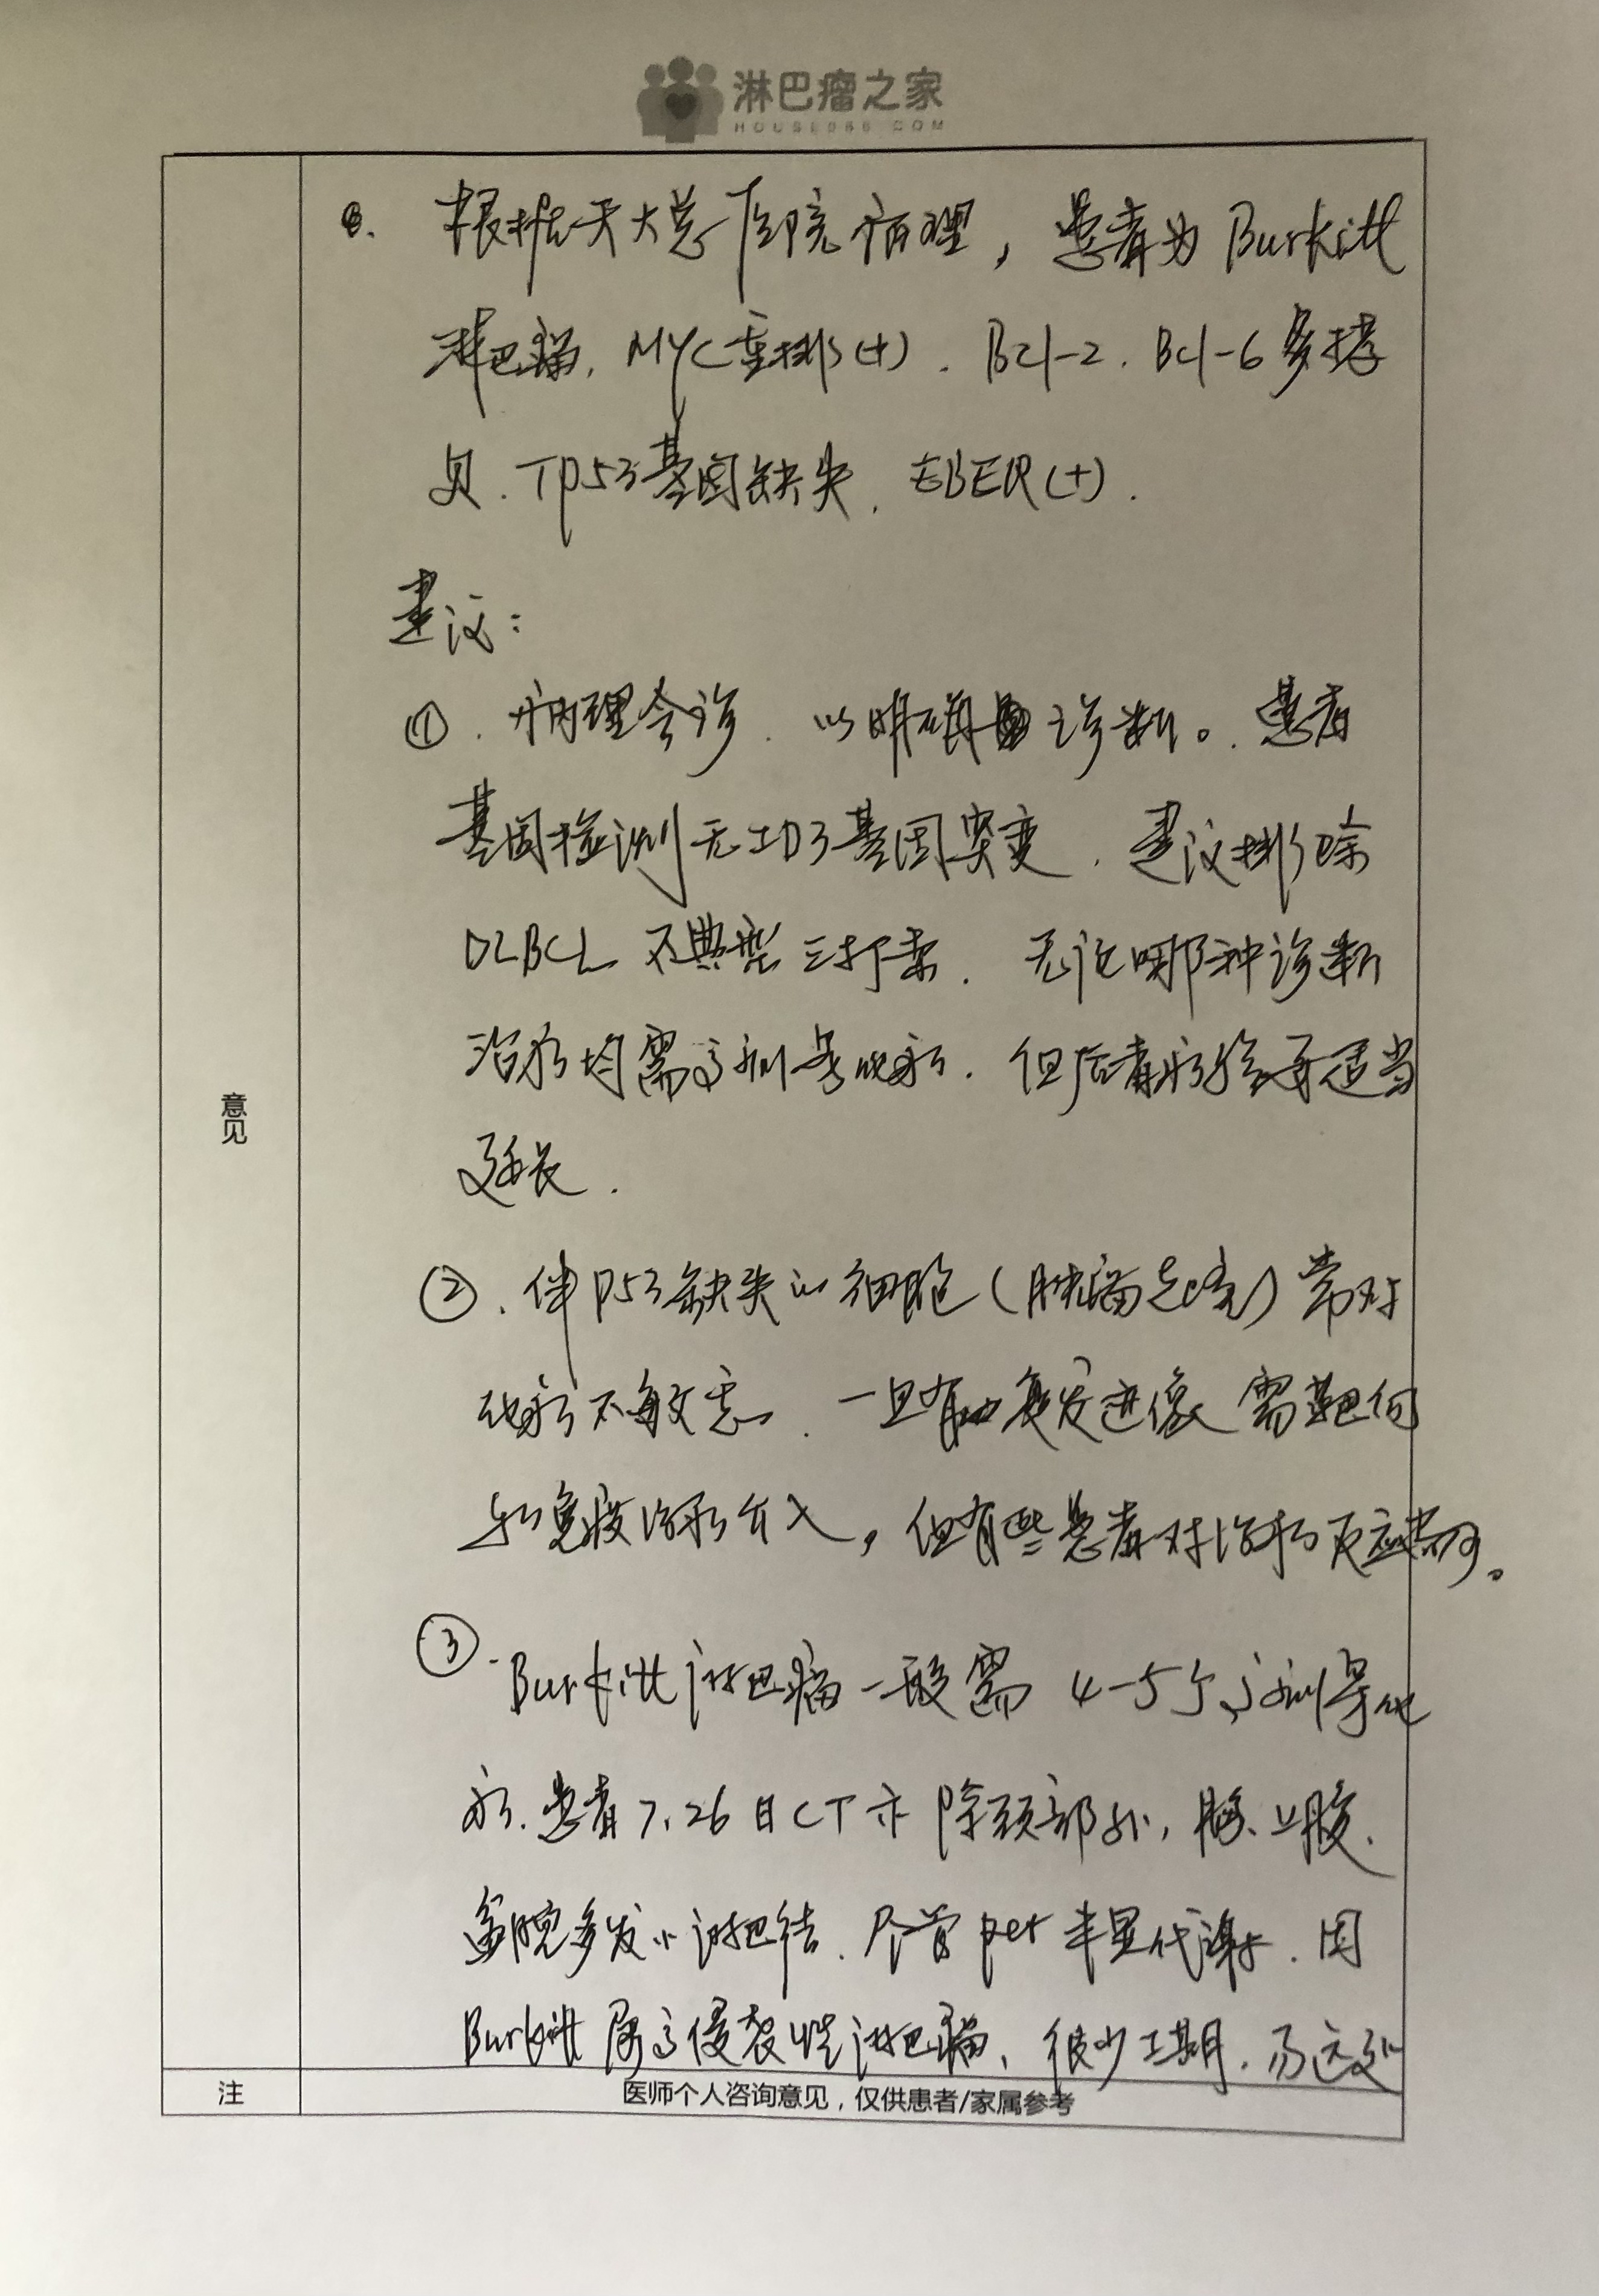 淋巴瘤之家
HOUSE086.COM
根据天大总医院病理，患者为Burkitt
淋巴瘤，MYC重排(+)．Bcl-2．Bcl-6多拷
贝．TP53基因缺失．EBER(+)．
建议：
①．病理会诊．以明确诊断。患者
基因检测无ID3基因突变．建议排除
DLBCL 不典型三打击．无论哪种诊断
治疗均需高剂量化疗．但后者疗程要适当
延长．
②．伴P53缺失的细胞(肿瘤克隆)常对
化疗不敏感．一旦有复发迹像需靶向
和免疫治疗介入，但有些患者对治疗反应尚可。
③．Burkitt淋巴瘤一般需 4-5个高剂量化
疗．患者7.26日CT示除颈部外，胸、上腹、
盆腔多发小淋巴结．尽管pet未显代谢．因
Burkitt属高侵袭性淋巴瘤、很少I期．易远处
意见
注
医师个人咨询意见，仅供患者/家属参考